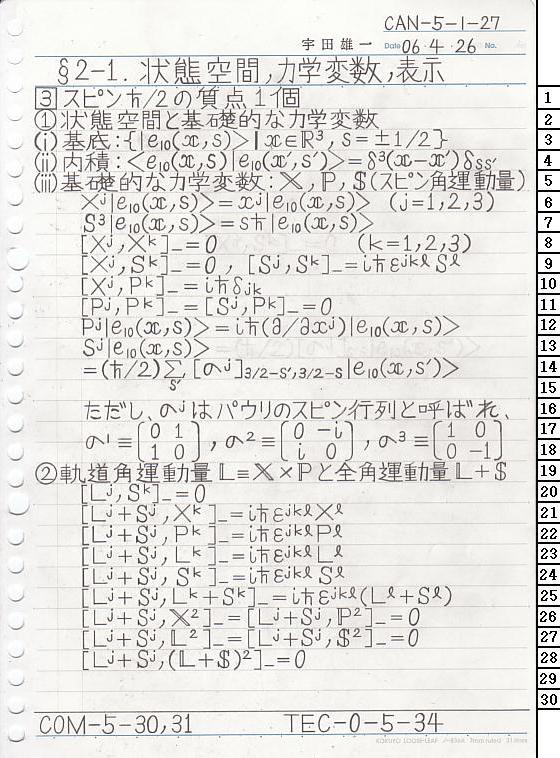 CAN-5-1-27
宇田雄一 Date 06・4・26 No.
§2-1. 状態空間,力学変数,表示
③ スピンℏ/2の質点1個
①状態空間と基礎的な力学変数
(i) 基底:{|e₁₀(x,s)>|x∈ℝ³, s=±1/2}
(ii) 内積:<e₁₀(x,s)|e₁₀(x',s')>=δ³(x-x')δss'
(iii)基礎的な力学変数:𝕏,ℙ,𝕊(スピン角運動量)
Xʲ|e₁₀(x,s)>=xʲ|e₁₀(x,s)> (j=1,2,3)
S³|e₁₀(x,s)>=sℏ|e₁₀(x,s)>
[Xʲ,Xᵏ]₋=0 (k=1,2,3)
[Xʲ,Sᵏ]₋=0, [Sʲ,Sᵏ]₋=iℏεʲᵏˡSˡ
[Xʲ,Pᵏ]₋=iℏδjk
[Pʲ,Pᵏ]₋=[Sʲ,Pᵏ]₋=0
Pʲ|e₁₀(x,s)>=iℏ(∂/∂xʲ)|e₁₀(x,s)>
Sʲ|e₁₀(x,s)>
=(ℏ/2)Σs' [σʲ]3/2-s',3/2-s|e₁₀(x,s')>
ただし、σʲはパウリのスピン行列と呼ばれ、
σ¹≡[0 1 / 1 0], σ²≡[0 -i / i 0], σ³≡[1 0 / 0 -1]
②軌道角運動量𝕃≡𝕏×ℙと全角運動量𝕃+𝕊
[Lʲ,Sᵏ]₋=0
[Lʲ+Sʲ,Xᵏ]₋=iℏεʲᵏˡXˡ
[Lʲ+Sʲ,Pᵏ]₋=iℏεʲᵏˡPˡ
[Lʲ+Sʲ,Lᵏ]₋=iℏεʲᵏˡLˡ
[Lʲ+Sʲ,Sᵏ]₋=iℏεʲᵏˡSˡ
[Lʲ+Sʲ,Lᵏ+Sᵏ]₋=iℏεʲᵏˡ(Lˡ+Sˡ)
[Lʲ+Sʲ,𝕏²]₋=[Lʲ+Sʲ,ℙ²]₋=0
[Lʲ+Sʲ,𝕃²]₋=[Lʲ+Sʲ,𝕊²]₋=0
[Lʲ+Sʲ,(𝕃+𝕊)²]₋=0
COM-5-30,31 TEC-0-5-34
KOKUYO LOOSE-LEAF
1
2
3
4
5
6
7
8
9
10
11
12
13
14
15
16
17
18
19
20
21
22
23
24
25
26
27
28
29
30